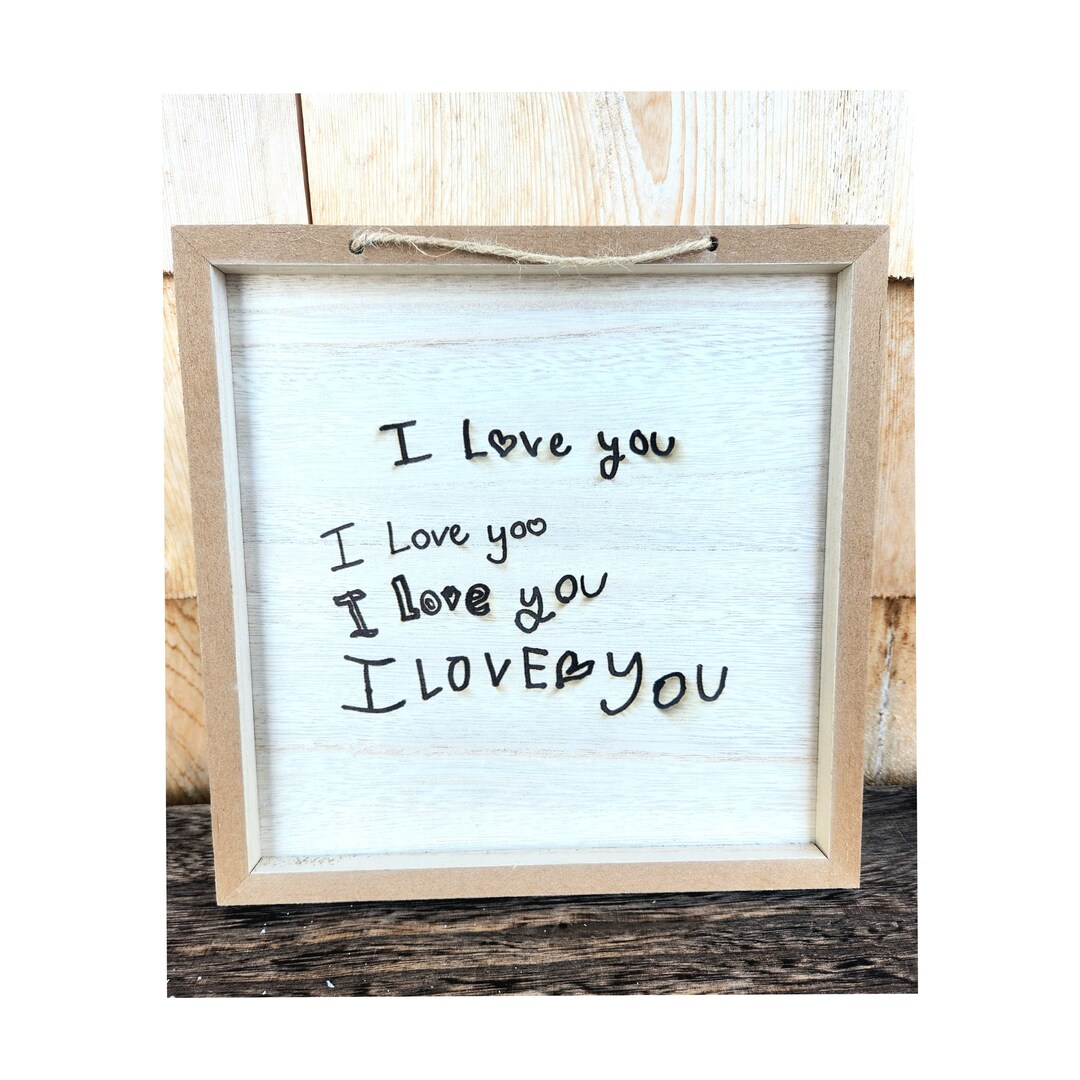 I Love you
I Love yoo
I love you
I LOVE YOU